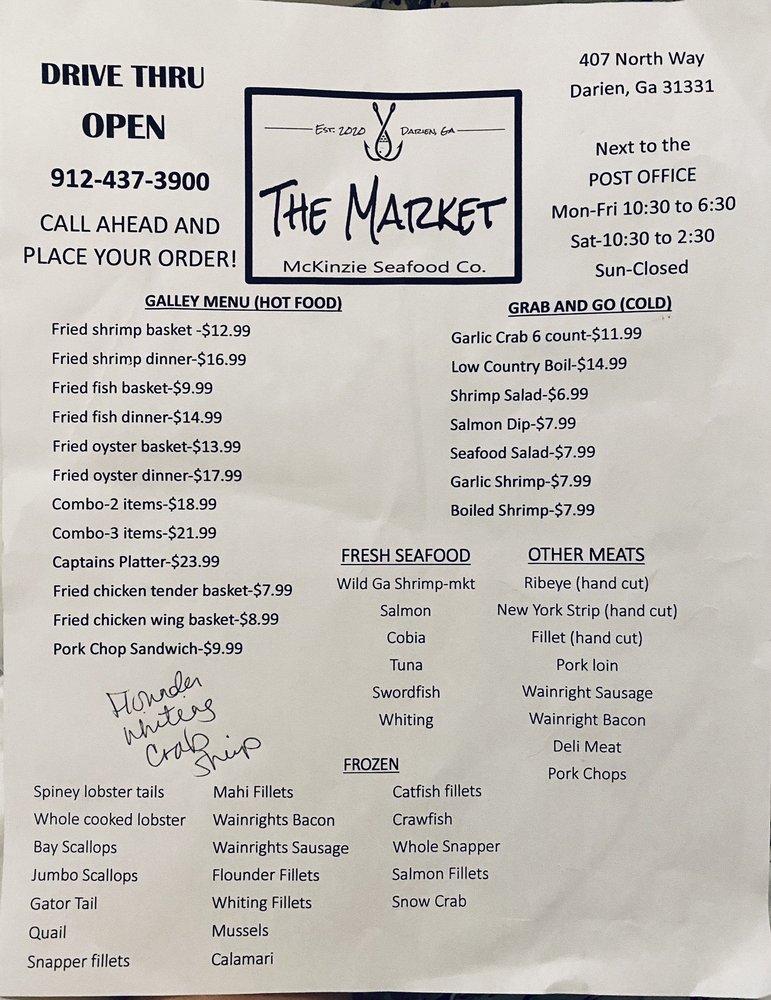 DRIVE THRU
OPEN
912-437-3900
CALL AHEAD AND
PLACE YOUR ORDER!
EST. 2020 DARIEN, GA
THE MARKET
McKinzie Seafood Co.
407 North Way
Darien, Ga 31331
Next to the
POST OFFICE
Mon-Fri 10:30 to 6:30
Sat-10:30 to 2:30
Sun-Closed
GALLEY MENU (HOT FOOD)
Fried shrimp basket -$12.99
Fried shrimp dinner-$16.99
Fried fish basket-$9.99
Fried fish dinner-$14.99
Fried oyster basket-$13.99
Fried oyster dinner-$17.99
Combo-2 items-$18.99
Combo-3 items-$21.99
Captains Platter-$23.99
Fried chicken tender basket-$7.99
Fried chicken wing basket-$8.99
Pork Chop Sandwich-$9.99
GRAB AND GO (COLD)
Garlic Crab 6 count-$11.99
Low Country Boil-$14.99
Shrimp Salad-$6.99
Salmon Dip-$7.99
Seafood Salad-$7.99
Garlic Shrimp-$7.99
Boiled Shrimp-$7.99
FRESH SEAFOOD
Wild Ga Shrimp-mkt
Salmon
Cobia
Tuna
Swordfish
Whiting
OTHER MEATS
Ribeye (hand cut)
New York Strip (hand cut)
Fillet (hand cut)
Pork loin
Wainright Sausage
Wainright Bacon
Deli Meat
Pork Chops
Flounder
Crab
FROZEN
Spiney lobster tails
Whole cooked lobster
Bay Scallops
Jumbo Scallops
Gator Tail
Quail
Snapper fillets
Mahi Fillets
Wainrights Bacon
Wainrights Sausage
Flounder Fillets
Whiting Fillets
Mussels
Calamari
Catfish fillets
Crawfish
Whole Snapper
Salmon Fillets
Snow Crab